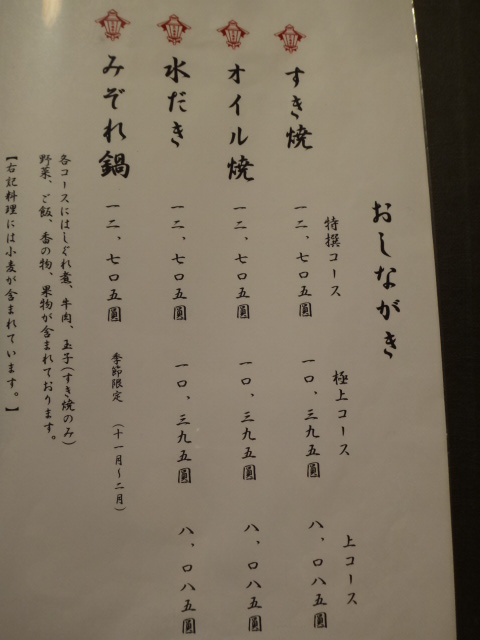 おしながき
特撰コース 極上コース 上コース
すき焼 一二、七〇五圓 一〇、三九五圓 八、〇八五圓
オイル焼 一二、七〇五圓 一〇、三九五圓 八、〇八五圓
水だき 一二、七〇五圓 一〇、三九五圓 八、〇八五圓
みぞれ鍋 一二、七〇五圓 季節限定 (十一月~二月)
各コースにはしぐれ煮、牛肉、玉子(すき焼のみ)
野菜、ご飯、香の物、果物が含まれております。
【右記料理には小麦が含まれています。】